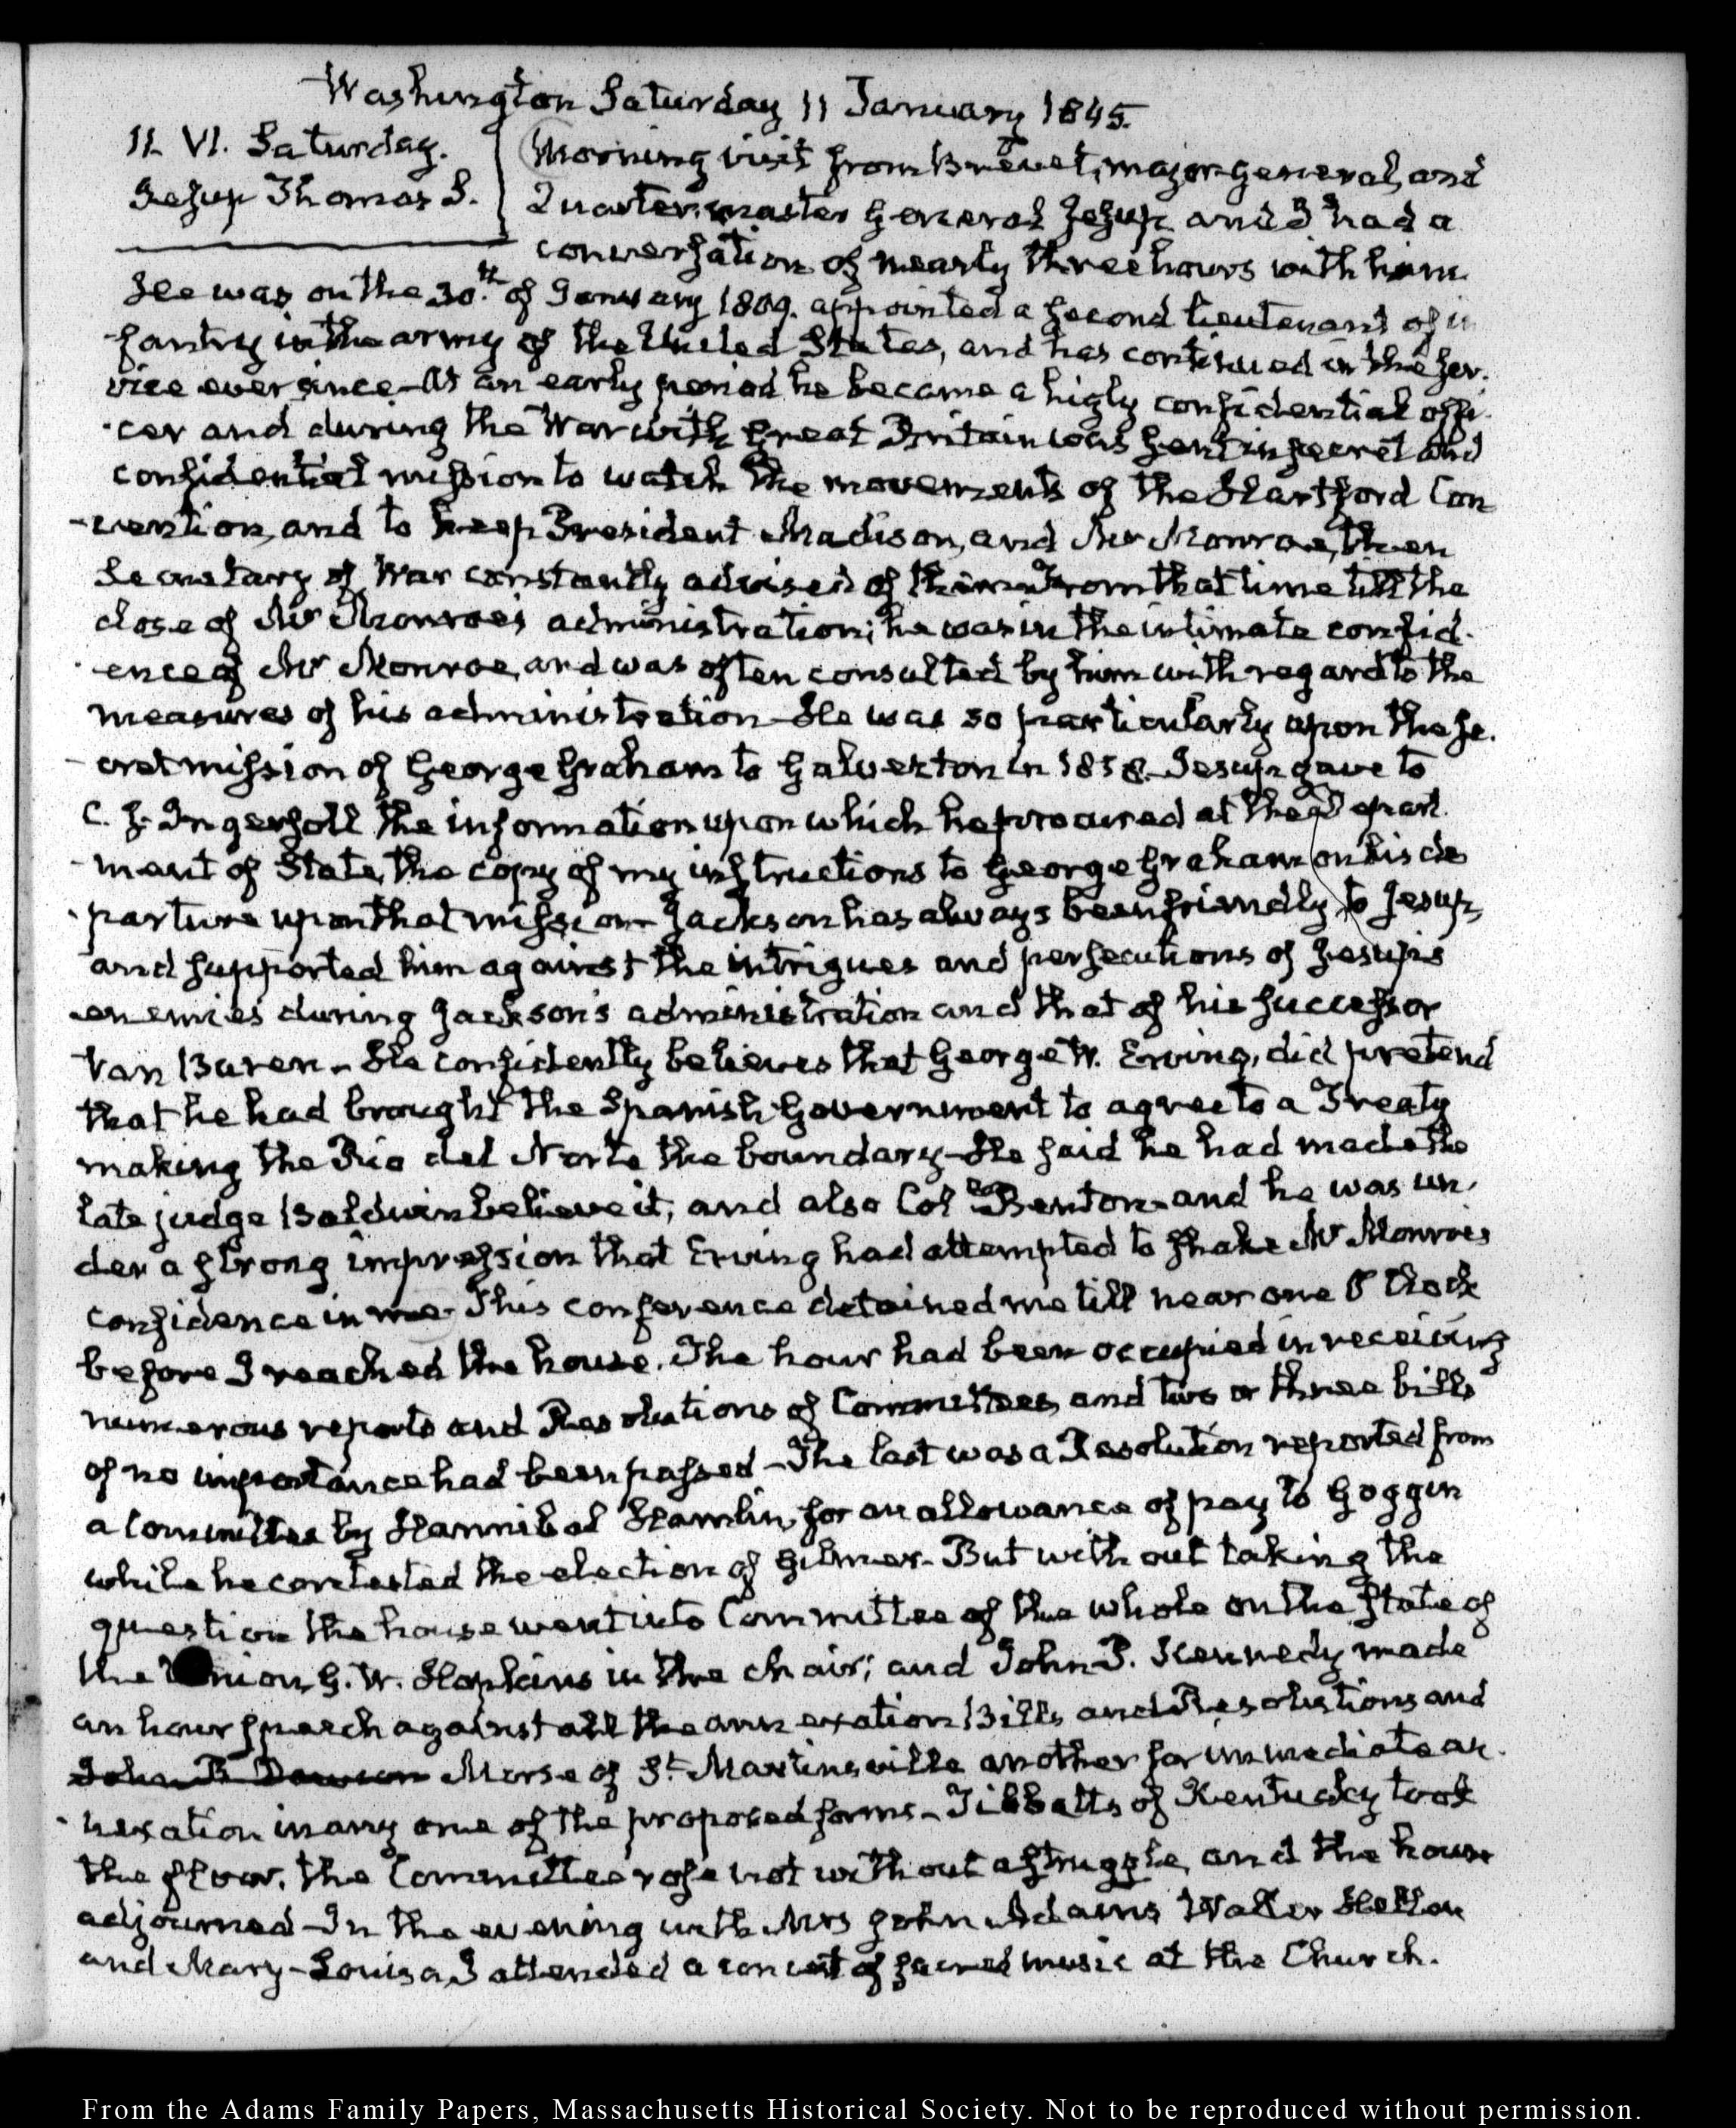 Washington Saturday 11 January 1845.
11. VI. Saturday.
Jesup Thomas S.
Morning visit from Brevet, major general, and
Quarter-master General Jesup and I had a
conversation of nearly three hours with him.
He was on the 30th. of January 1809. appointed a second lieutenant of in
-fantry in the army of the United States, and has continued in the ser-
vice ever since. At an early period he became a higly confidential offi-
-cer and during the War with Great Britain was sent in secret and
confidential mission to watch the movements of the Hartford Con
-vention, and to keep President Madison, and Mr Monroe, then
Secretary of War constantly advised of them. From that time till the
close of Mr Monroe's administration; he was in the intimate confid-
-ence of Mr Monroe, and was often consulted by him with regard to the
measures of his administration. He was so particularly upon the se-
-cret mission of George Graham to Galveston in 1818. Jesup gave to
C. J. Ingersoll the information upon which he procured at the Depart-
-ment of State, the copy of my instructions to George Graham on his de
-parture upon that mission. Jackson has always been friendly to Jesup,
and supported him against the intrigues and persecutions of Jesup's
enemies during Jackson's administration and that of his successor
Van Buren. He confidently believes that George W. Erving, did pretend
that he had brought the Spanish Government to agree to a Treaty
making the Rio del Norte the boundary. He said he had made the
late judge Baldwin believe it, and also Col. Benton and he was un-
der a strong impression that Erving had attempted to shake Mr Monroe's
confidence in me. This conference detained me till near one O'Clock
before I reached the house. The hour had been occupied in receiving
numerous reports and Resolutions of Committees, and two or three bills
of no importance had been passed. The last was a Resolution reported from
a Committee by Hannibal Hamlin, for an allowance of pay to Goggin
while he contested the election of Gilmer. But without taking the
question the house went into Committee of the whole on the state of
the Union, G. W. Hopkins in the chair; and John P. Kennedy made
an hour speech against all the annexation Bills and Resolutions and
John B Dawson Morse of St. Martinsville another for immediate an-
-nexation in any one of the proposed forms. Tibbatts of Kentucky took
the floor. the Committee rose not without a struggle, and the house
adjourned. In the evening with Mrs John Adams Walter Hellen
and Mary-Louisa, I attended a concert of sacred music at the Church.
From the Adams Family Papers, Massachusetts Historical Society. Not to be reproduced without permission.